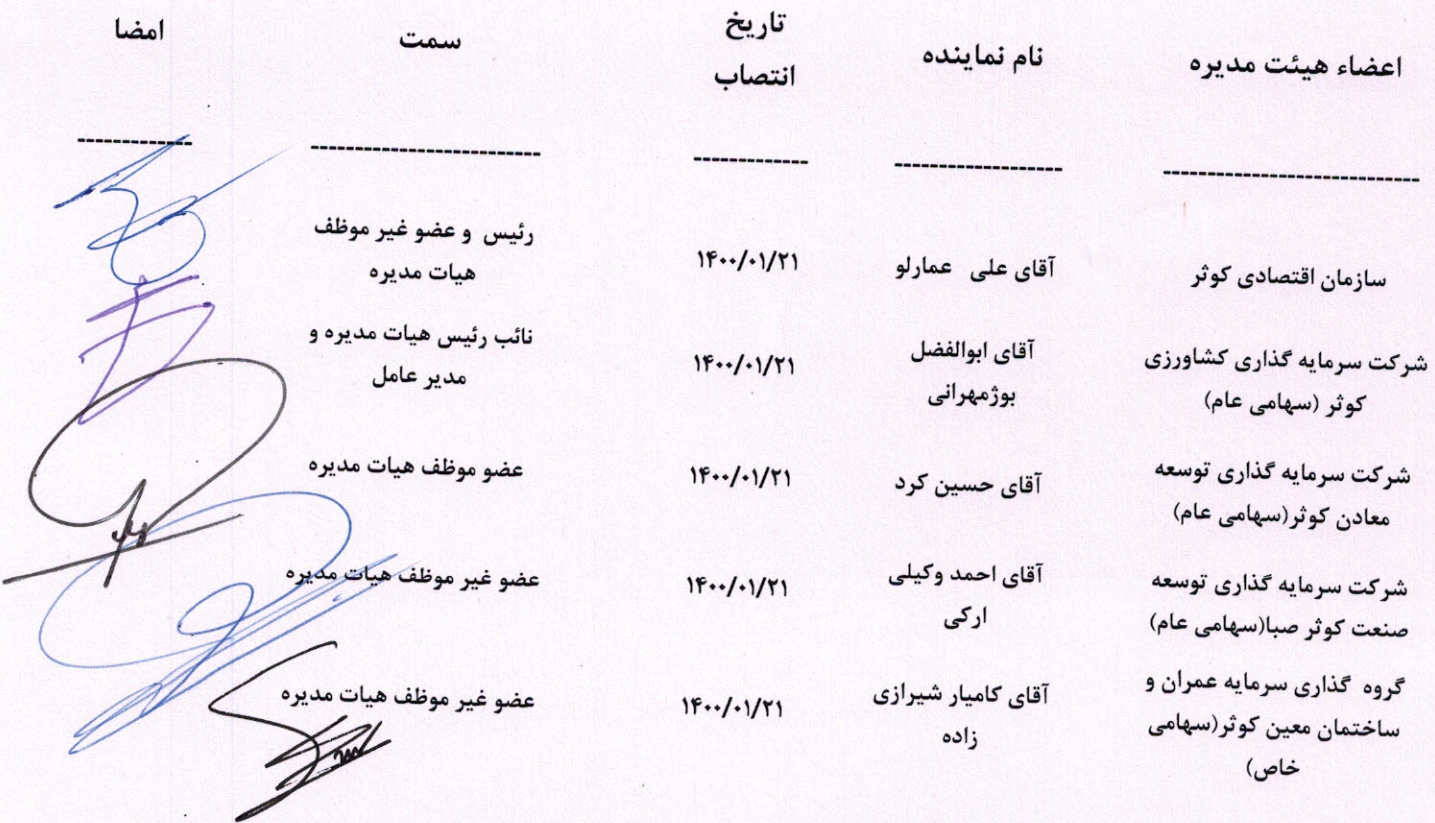 اعضاء هیئت مدیره
نام نماینده
تاریخ
انتصاب
سمت
امضا
سازمان اقتصادی کوثر
آقای علی عمارلو
۱۴۰۰/۰۱/۲۱
رئیس و عضو غیر موظف
هیات مدیره
شرکت سرمایه گذاری کشاورزی
کوثر (سهامی عام)
آقای ابوالفضل
بوژمهرانی
۱۴۰۰/۰۱/۲۱
نائب رئیس هیات مدیره و
مدیر عامل
شرکت سرمایه گذاری توسعه
معادن کوثر(سهامی عام)
آقای حسین کرد
۱۴۰۰/۰۱/۲۱
عضو موظف هیات مدیره
شرکت سرمایه گذاری توسعه
صنعت کوثر صبا(سهامی عام)
آقای احمد وکیلی
ارکی
۱۴۰۰/۰۱/۲۱
عضو غیر موظف هیات مدیره
گروه گذاری سرمایه عمران و
ساختمان معین کوثر(سهامی
خاص)
آقای کامیار شیرازی
زاده
۱۴۰۰/۰۱/۲۱
عضو غیر موظف هیات مدیره